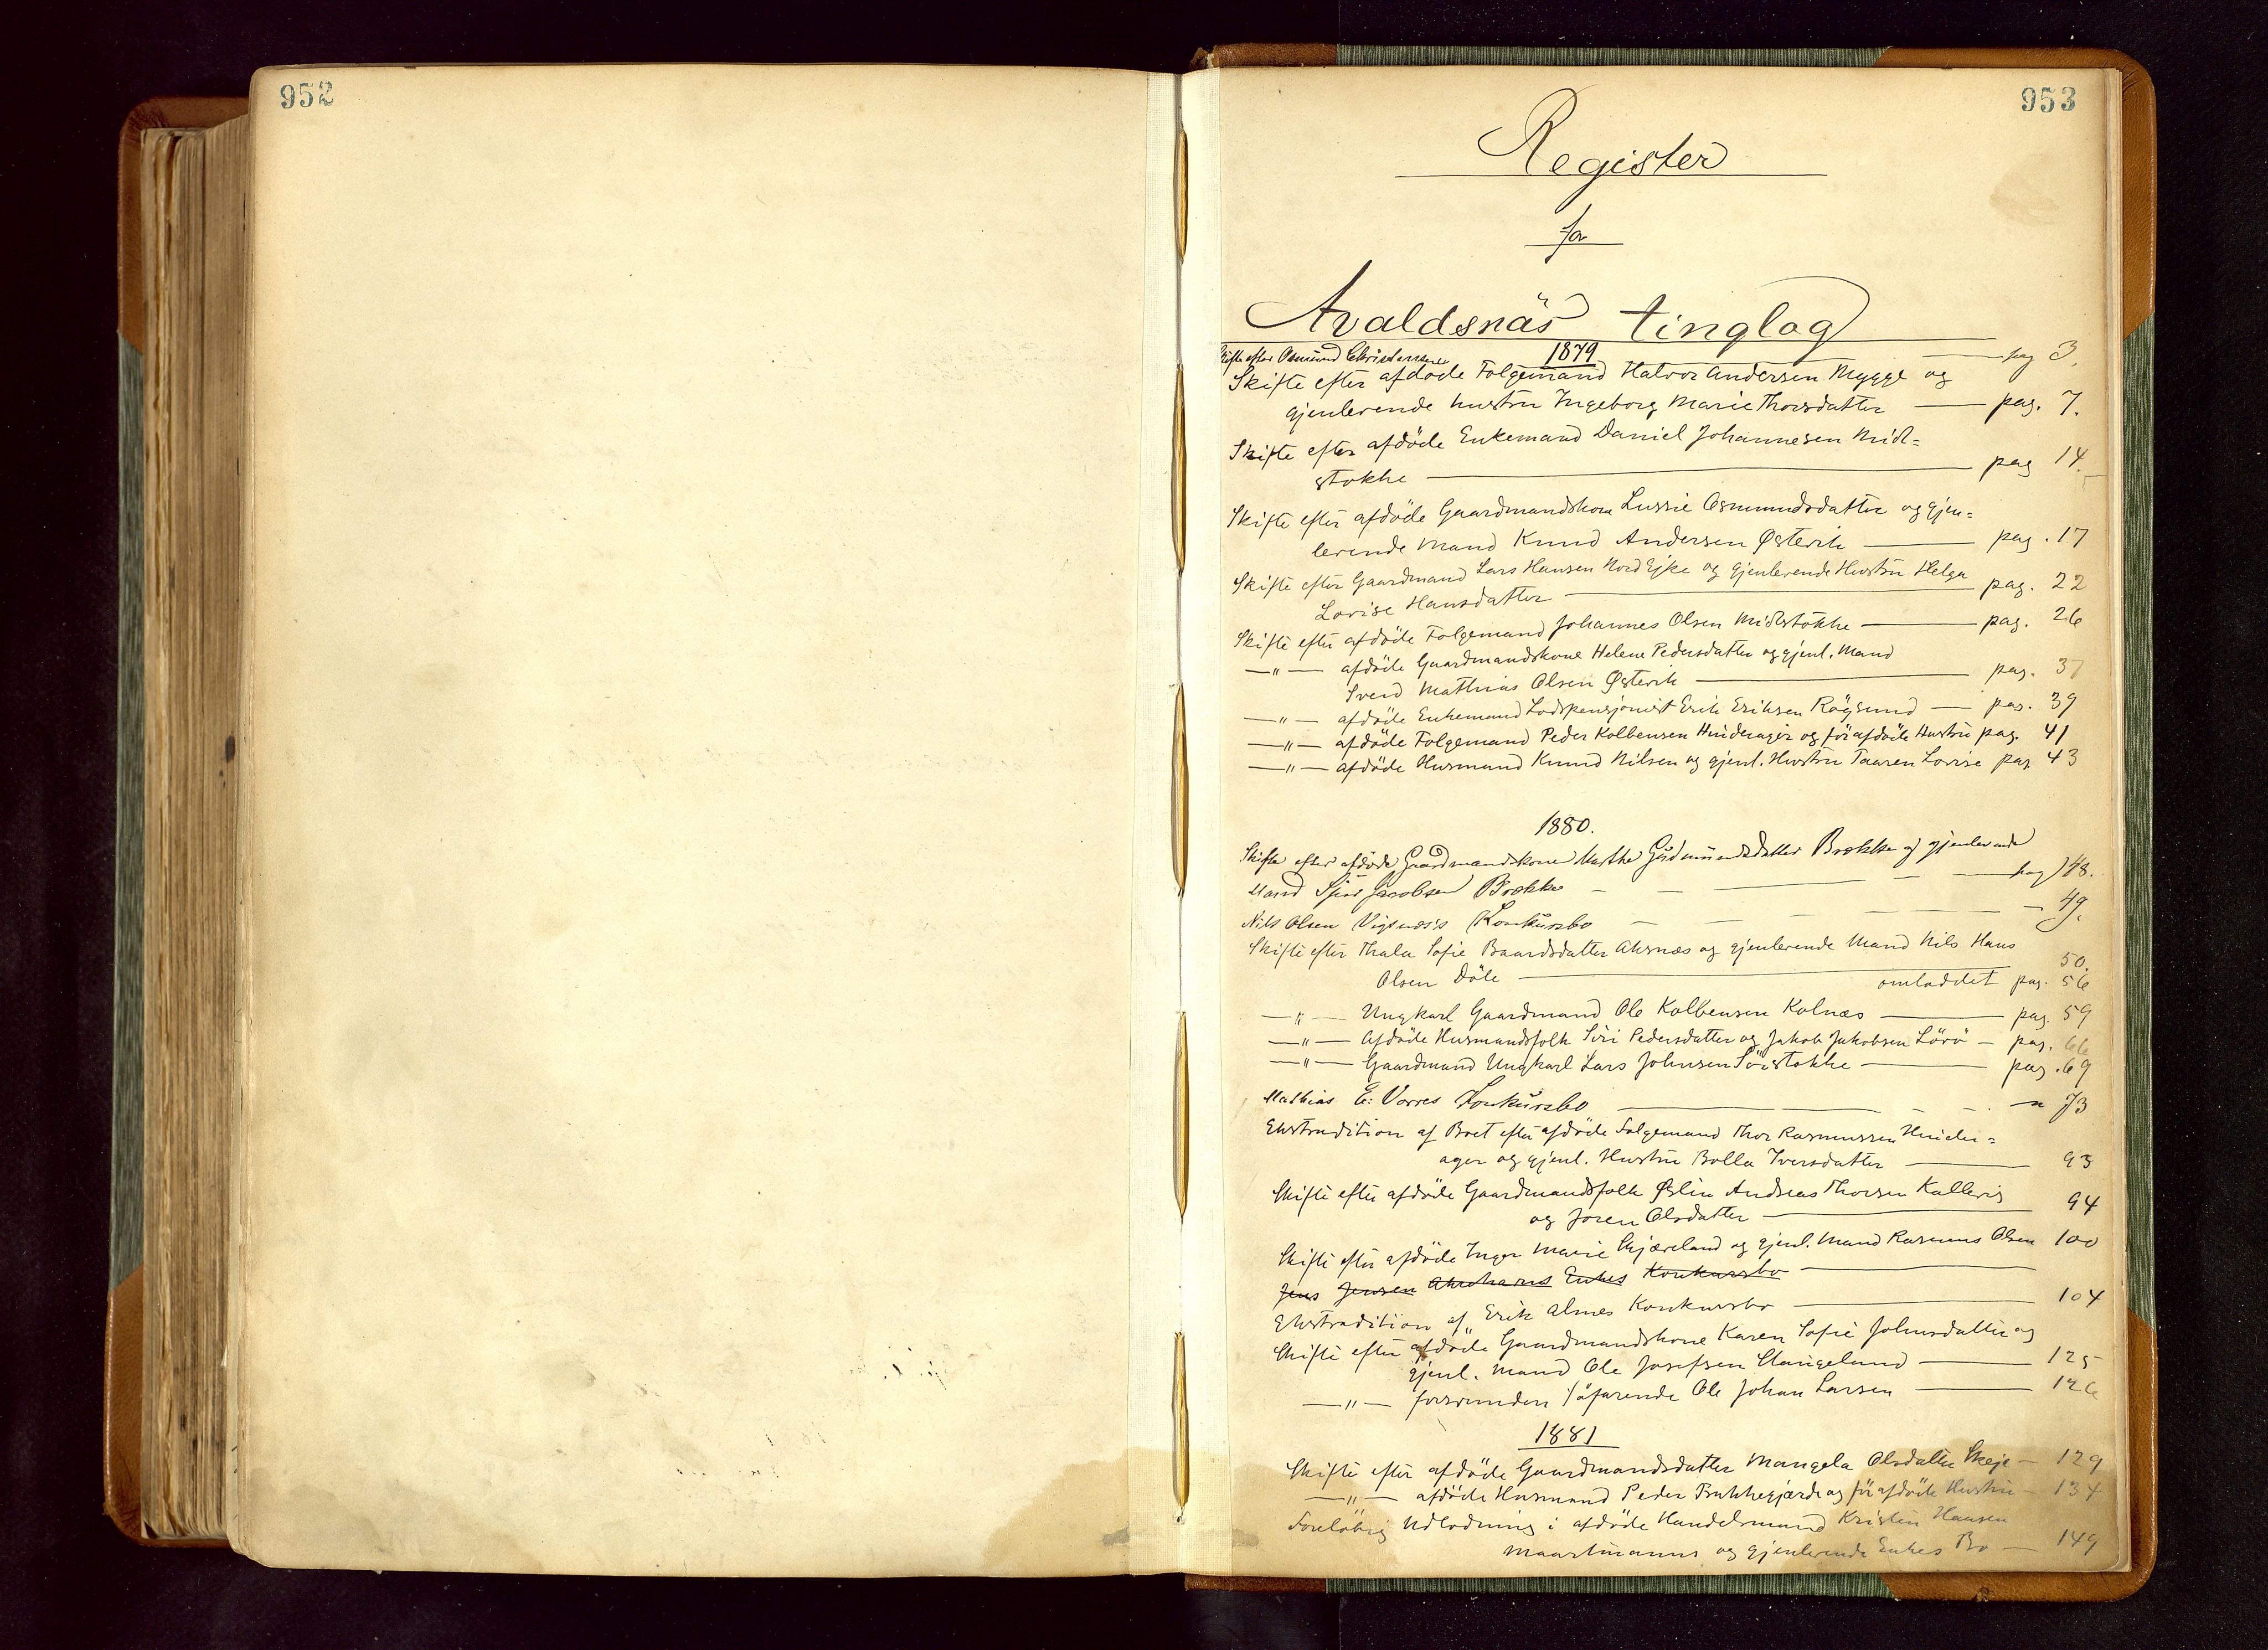 952
953
Register
for
Avaldsnäs tinglag
1879
Skifte efter Osmund Christensen pag 3.
Skifte efter afdöde Folgemand Halvor Andersen Mygge og
gjenlevende hustru Ingeborg Marie Thorsdatter — pag. 7.
Skifte efter afdöde Enkemand Daniel Johannesen Mid-
stokke — pag 14.
Skifte efter afdöde Gaardmandskone Lussie Osmundsdatter og gjen-
levende Mand Knud Andersen Østevik — pag. 17
Skifte efter Gaardmand Lars Hansen Nord Ejke og gjenlevende Hustru Helga
Lovise Hansdatter — pag. 22
Skifte efter afdöde Folgemand Johannes Olsen Midtstokke — pag. 26
—"— afdöde Gaardmandskone Helene Pedersdatter og gjenl. Mand
Svend Mathias Olsen Østevik — pag. 37
—"— afdöde Enkemand Lodspensjonist Erik Eriksen Röysund — pag. 39
—"— afdöde Folgemand Peder Kolbensen Hinderager og förafdöde Hustru pag. 41
—"— afdöde Husmand Knud Nilsen og gjenl. Hustru Taaren Lovise pag 43
1880.
Skifte efter afdöde Gaardmandskone Marthe Gudmundsdatter Brekke og gjenlevende
Mand Sjur Jacobsen Brekke — pag 48.
Nils Olsen Vigsnes's Konkursbo — 49.
Skifte efter Thala Sofie Baardsdatter Aksnæs og gjenlevende Mand Nils Hans
Olsen Döle — 50.
omladdet pag. 56
—"— Ungkarl Gaardmand Ole Kolbensen Kolnæs — pag. 59
—"— Afdöde Husmandsfolk Siri Pedersdatter og Jakob Jakobsen Lövö — pag. 66
—"— Gaardmand Ungkarl Lars Johnsen Sörstokke — pag. 69
Mathias E. Vorres Konkursbo — " 73
Ekstradition af Boet efter afdöde Folgemand Thor Rasmussen Hinder-
ager og gjenl. Hustru Bolla Iversdatter — 93
Skifte efter afdöde Gaardmandsfolk Østen Andreas Thorsen Kallevig
og Joren Olsdatter — 94
Skifte efter afdöde Inger Marie Skjæveland og gjenl. Mand Rasmus Olsen 100
Jens Jensen Enkes Konkursbo —
Ekstradition af Erik Almes Konkursbo — 104
Skifte efter afdöde Gaardmandskone Karen Sofie Johnsdatter og
gjenl. Mand Ole Josefsen Stangeland — 125
—"— forsvunden Söfarende Ole Johan Larsen — 126
1881
Skifte efter afdöde Gaardmandsdatter Mangela Olsdatter Skeje — 129
—"— afdöde Husmand Peder Bakkegjærde og förafdöde Hustru — 134
Forelöbig Udlodning i afdöde Handelsmand Kristen Hansen
Maartmanns og gjenlevende Enkes Bo — 149